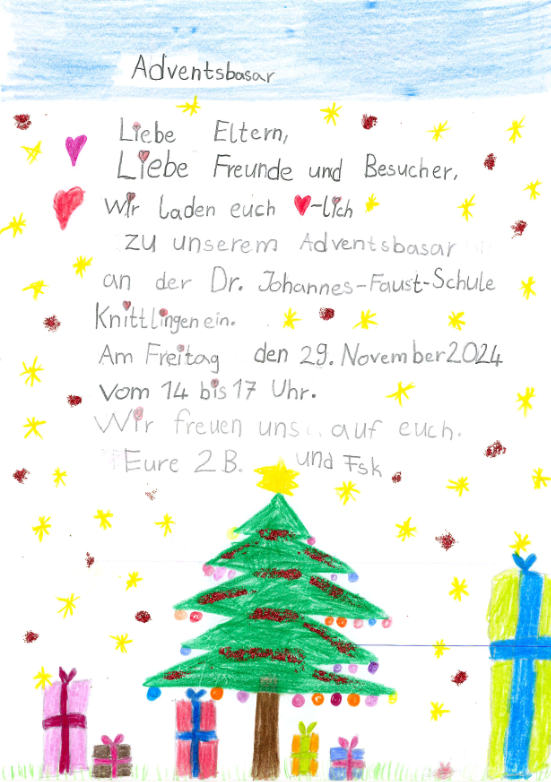 Adventsbasar
Liebe Eltern,
Liebe Freunde und Besucher,
wir laden euch ♥-lich
zu unserem Adventsbasar
an der Dr. Johannes-Faust-Schule
Knittlingen ein.
Am Freitag den 29. November 2024
Vom 14 bis 17 Uhr.
Wir freuen uns auf euch.
Eure 2B. und Fsk